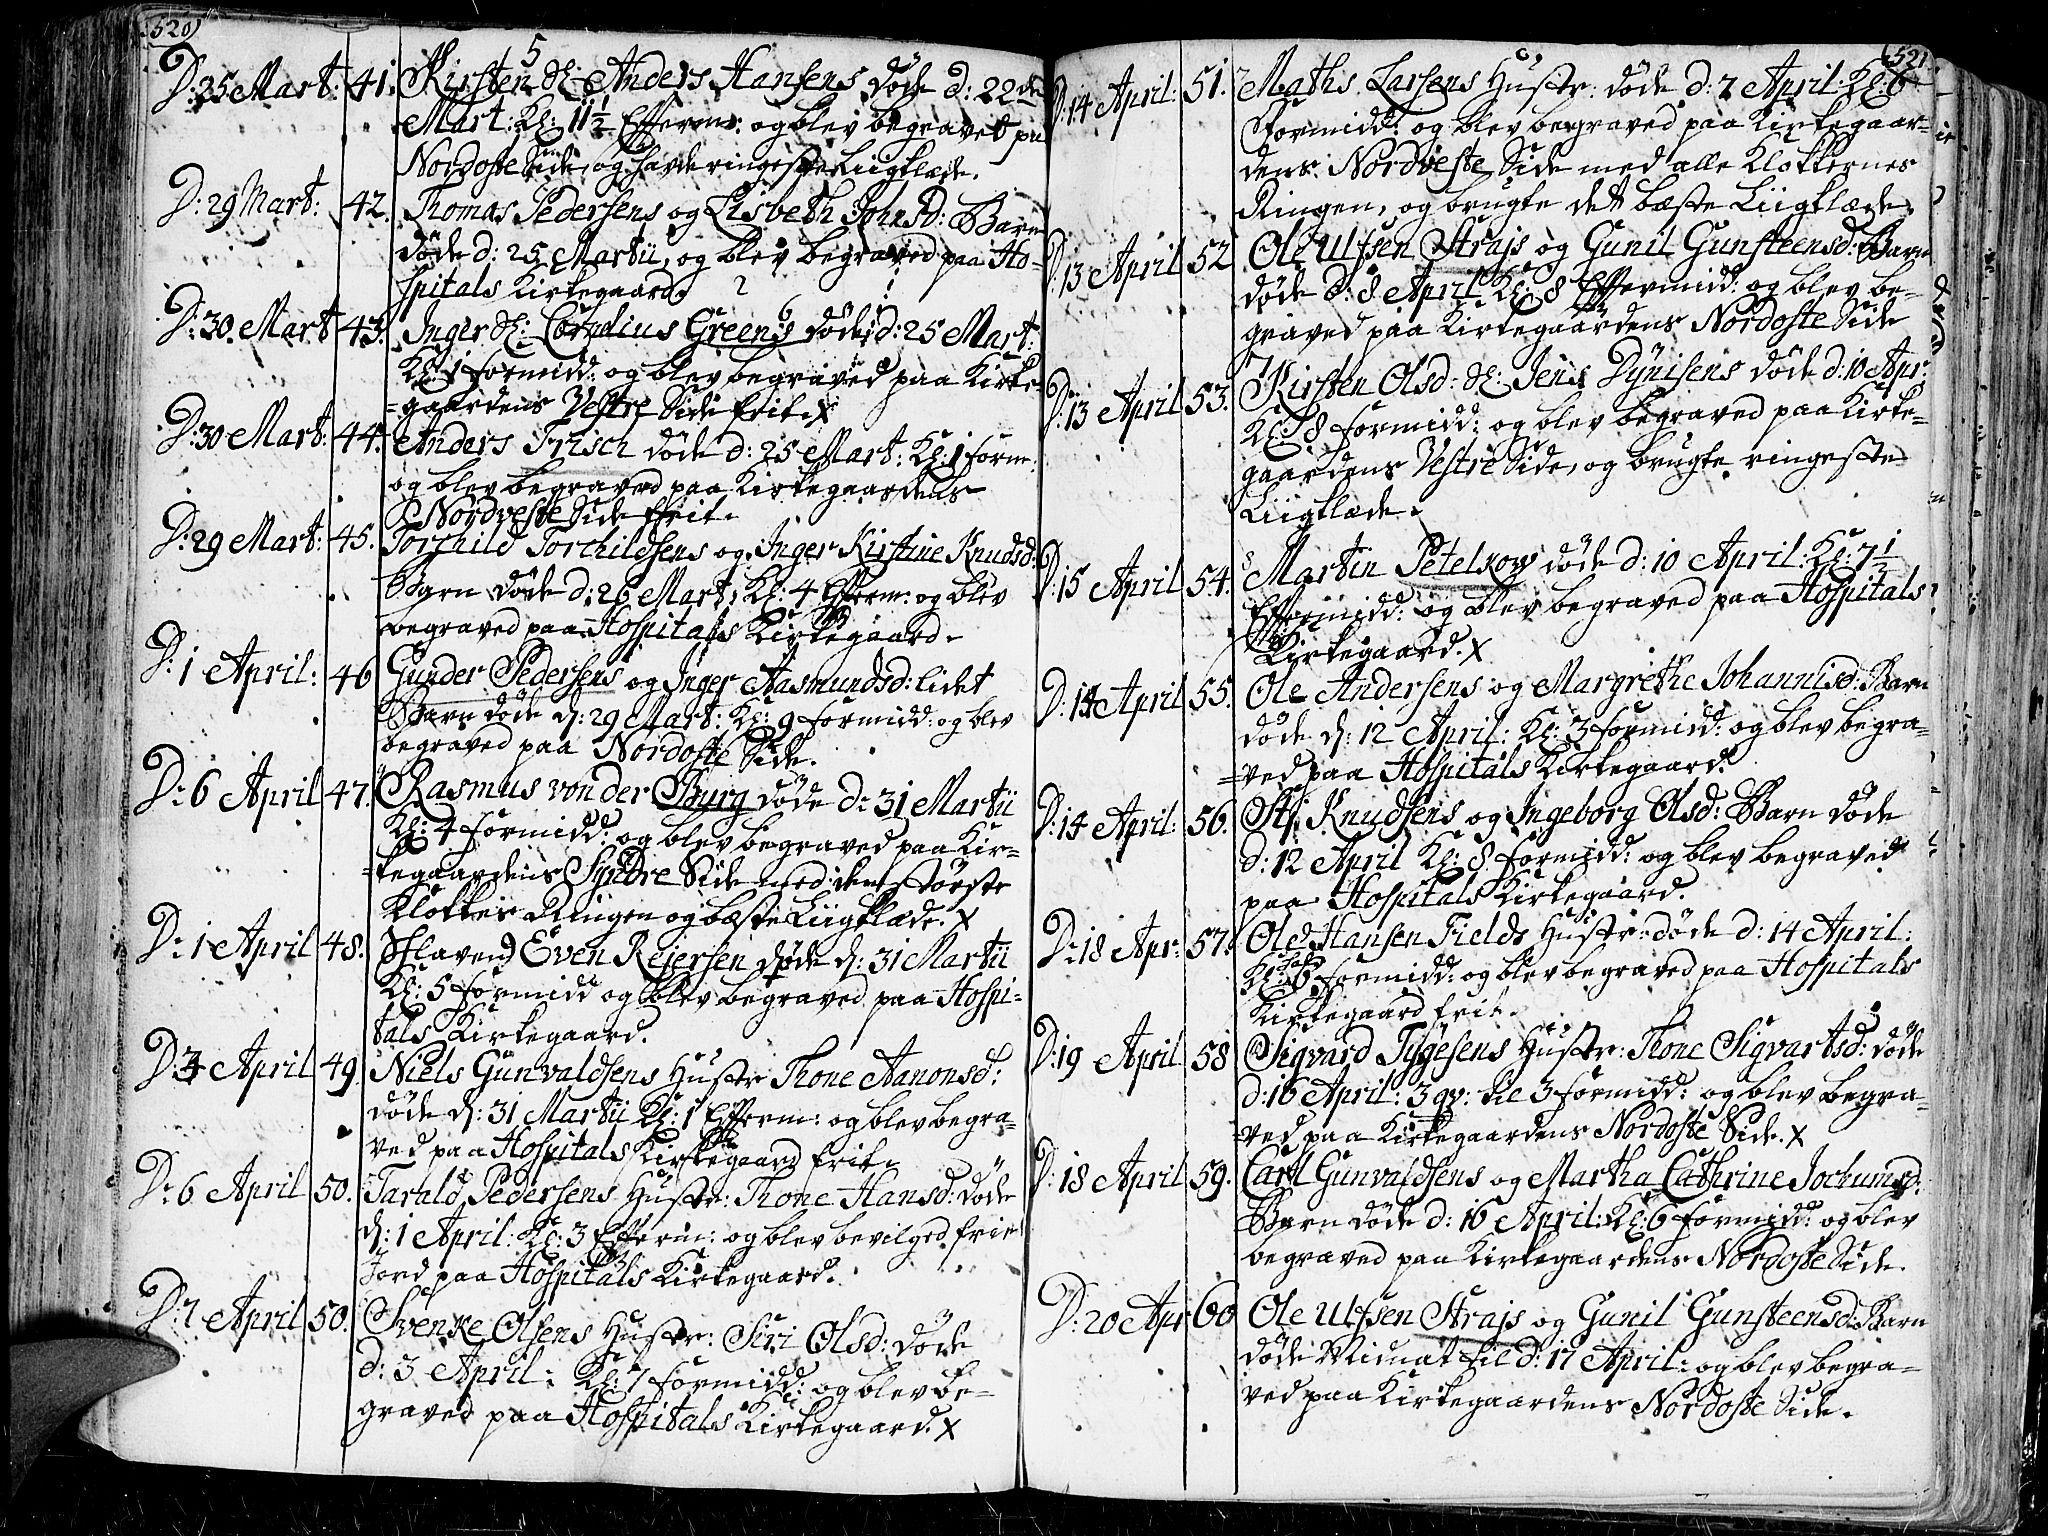 520)
5
D: 25 Mart: 41. Kirsten Sl: Anders Hansens døde d: 22de
Mart: Kl: 11 1/2 Efterm: og blev begravet paa
Nordoste Side, og havde ringeste Liigklæde.
D: 29 Mart: 42. Thomas Pedersens og Lisbeth Johsd: Barn
døde d: 25 Martii, og blev begraved paa Ho-
spitals Kirkegaard.
6
D: 30. Mart 43. Inger Sl: Cornelius Greens døde d: 25 Mart:
Kl: 1 formidd: og blev begraved paa Kirke-
=gaardens Vestre Side frit. X
D: 30 Mart: 44. Anders Frisch døde d: 25 Mart: Kl: 1 form:
og blev begraved paa Kirkegaardens
Nordveste Side frit.
D: 29 Mart: 45. Torchild Torchildsens og Inger Kirstine Knudsd:
Barn døde d: 26 Mart: Kl: 4 Efterm: og blev
begraved paa Hospitals Kirkegaard.
D: 1 April: 46 Gunder Pedersens og Inger Aasmundsd: lidet
Barn døde d: 29 Mart: Kl: 9 formidd: og blev
begraved paa Nordoste Side.
D: 6 April 47. Rasmus von der Burg døde d: 31 Martii
Kl: 4 formidd: og blev begraved paa Kir-
=kegaardens Syndre Side med den største
Klokkes Ringen og bæste Liigklæde. X
D: 1 April 48. Slaven Even Rejersen døde d: 31 Martii
Kl: 5 formidd og blev begraved paa Hospi-
tals Kirkegaard.
D: 4 April 49. Niels Gunvaldsens Hustr Thone Aanonsd:
døde d: 31 Martii Kl: 1 Efterm: og blev begra-
ved paa Hospitals Kirkegaard frit.
D: 6 April 50. Tarald Pedersens Hustr: Thone Hansd: døde
d: 1 April: Kl: 3 Efterm: og blev bevilged frie
Jord paa Hospitals Kirkegaard.
D: 7 April 50. Svenke Olsens Hustr: Siri Olsd: døde
d: 3 April: Kl: 7 formidd: og blev be-
graved paa Hospitals Kirkegaard. X
(521
D: 14 April: 51. Mathis Larsens Hustr: døde d: 7 April: Kl: 6
Formidd: og blev begraved paa Kirkegaar-
dens Nordveste Side med alle Klokkernes
Ringen, og brugte det bæste Liigklæde.
D: 13 April 52 Ole Ulfsen Strajs og Gunil Gunsteensd: Barn
døde d: 8 April Kl: 8 Eftermidd: og blev be-
graved paa Kirkegaardens Nordoste Side
D: 13 April 53. Kirsten Olsd: Sl: Jens Dynisens døde d: 10 Apr:
Kl: 8 formidd: og blev begraved paa Kirke-
gaardens Vestre Side, og brugte ringeste
Liigklæde.
D: 15 April 54. Martin Petelkow døde d: 10 April: Kl: 7 1/2
Eftermidd: og blev begraved paa Hospitals
Kirkegaard. X
D: 14 April 55. Ole Andersens og Margrethe Johannisd: Barn
døde d: 12 April: Kl: 3 formidd: og blev begra-
=ved paa Hospitals Kirkegaard.
D: 14 April: 56. Sti Knudsens og Ingeborg Olsd: Barn døde
d: 12 April Kl: 8 formidd: og blev begraved
paa Hospitals Kirkegaard.
D: 18 Apr: 57. Ole Hansen Fields Hustr: døde d: 14 April:
Kl: 6 formidd: og blev begraved paa Hospitals
Kirkegaard frit.
D: 19 April 58 Sigvard Tygesens Hustr: Thone Sigvartsd: døde
d: 16 April: 3 qv: til 3 formidd: og blev begra-
=ved paa Kirkegaardens Nordoste Side. X
D: 18 April 59. Carl Gunvaldsens og Martha Cathrine Jochumsd.
Barn døde d: 16 April: Kl: 6 formidd: og blev
begraved paa Kirkegaardens Nordoste Side.
D: 20 Apr 60 Ole Ulfsen Strajs og Gunil Gunsteensd: Barn
døde Midnat til d: 17 April: og blev begra-
ved paa Kirkegaardens Nordoste Side.